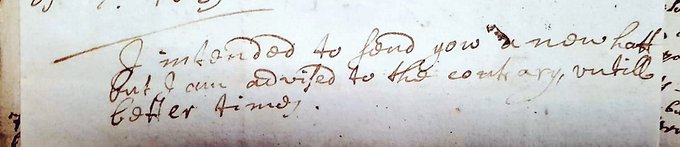 I intended to send yow a new hatt
but I am advised to the contrary, vntill
better times.